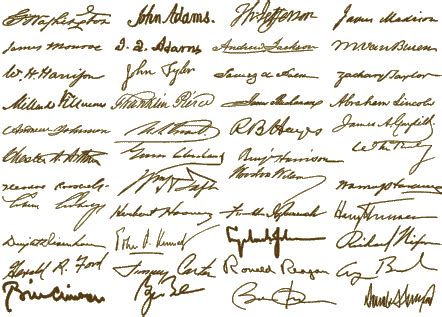 G Washington John Adams. Th Jefferson James Madison
James Monroe J. Q. Adams Andrew Jackson M Van Buren
W. H. Harrison John Tyler James K Polk Zachary Taylor
Millard Fillmore Franklin Pierce James Buchanan Abraham Lincoln
Andrew Johnson U. S. Grant R B Hayes James A. Garfield
Chester A Arthur Grover Cleveland Benj Harrison
Theodore Roosevelt Wm H Taft Woodrow Wilson Warren G Harding
Calvin Coolidge Herbert Hoover Franklin D Roosevelt Harry Truman
Dwight D Eisenhower John F. Kennedy Richard Nixon
Gerald R. Ford Jimmy Carter Ronald Reagan G Bush